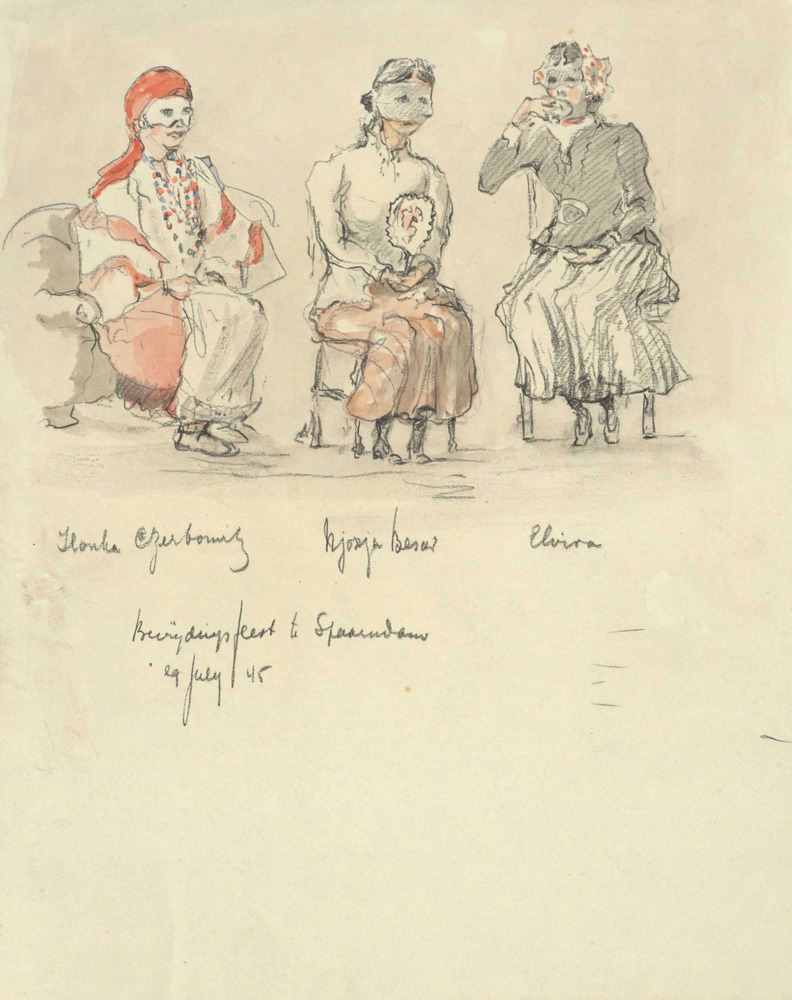 Ilonka Czerbowitz Njonja Besar Elvira
Bevrijdingsfeest te Spaarndam
29 July '45